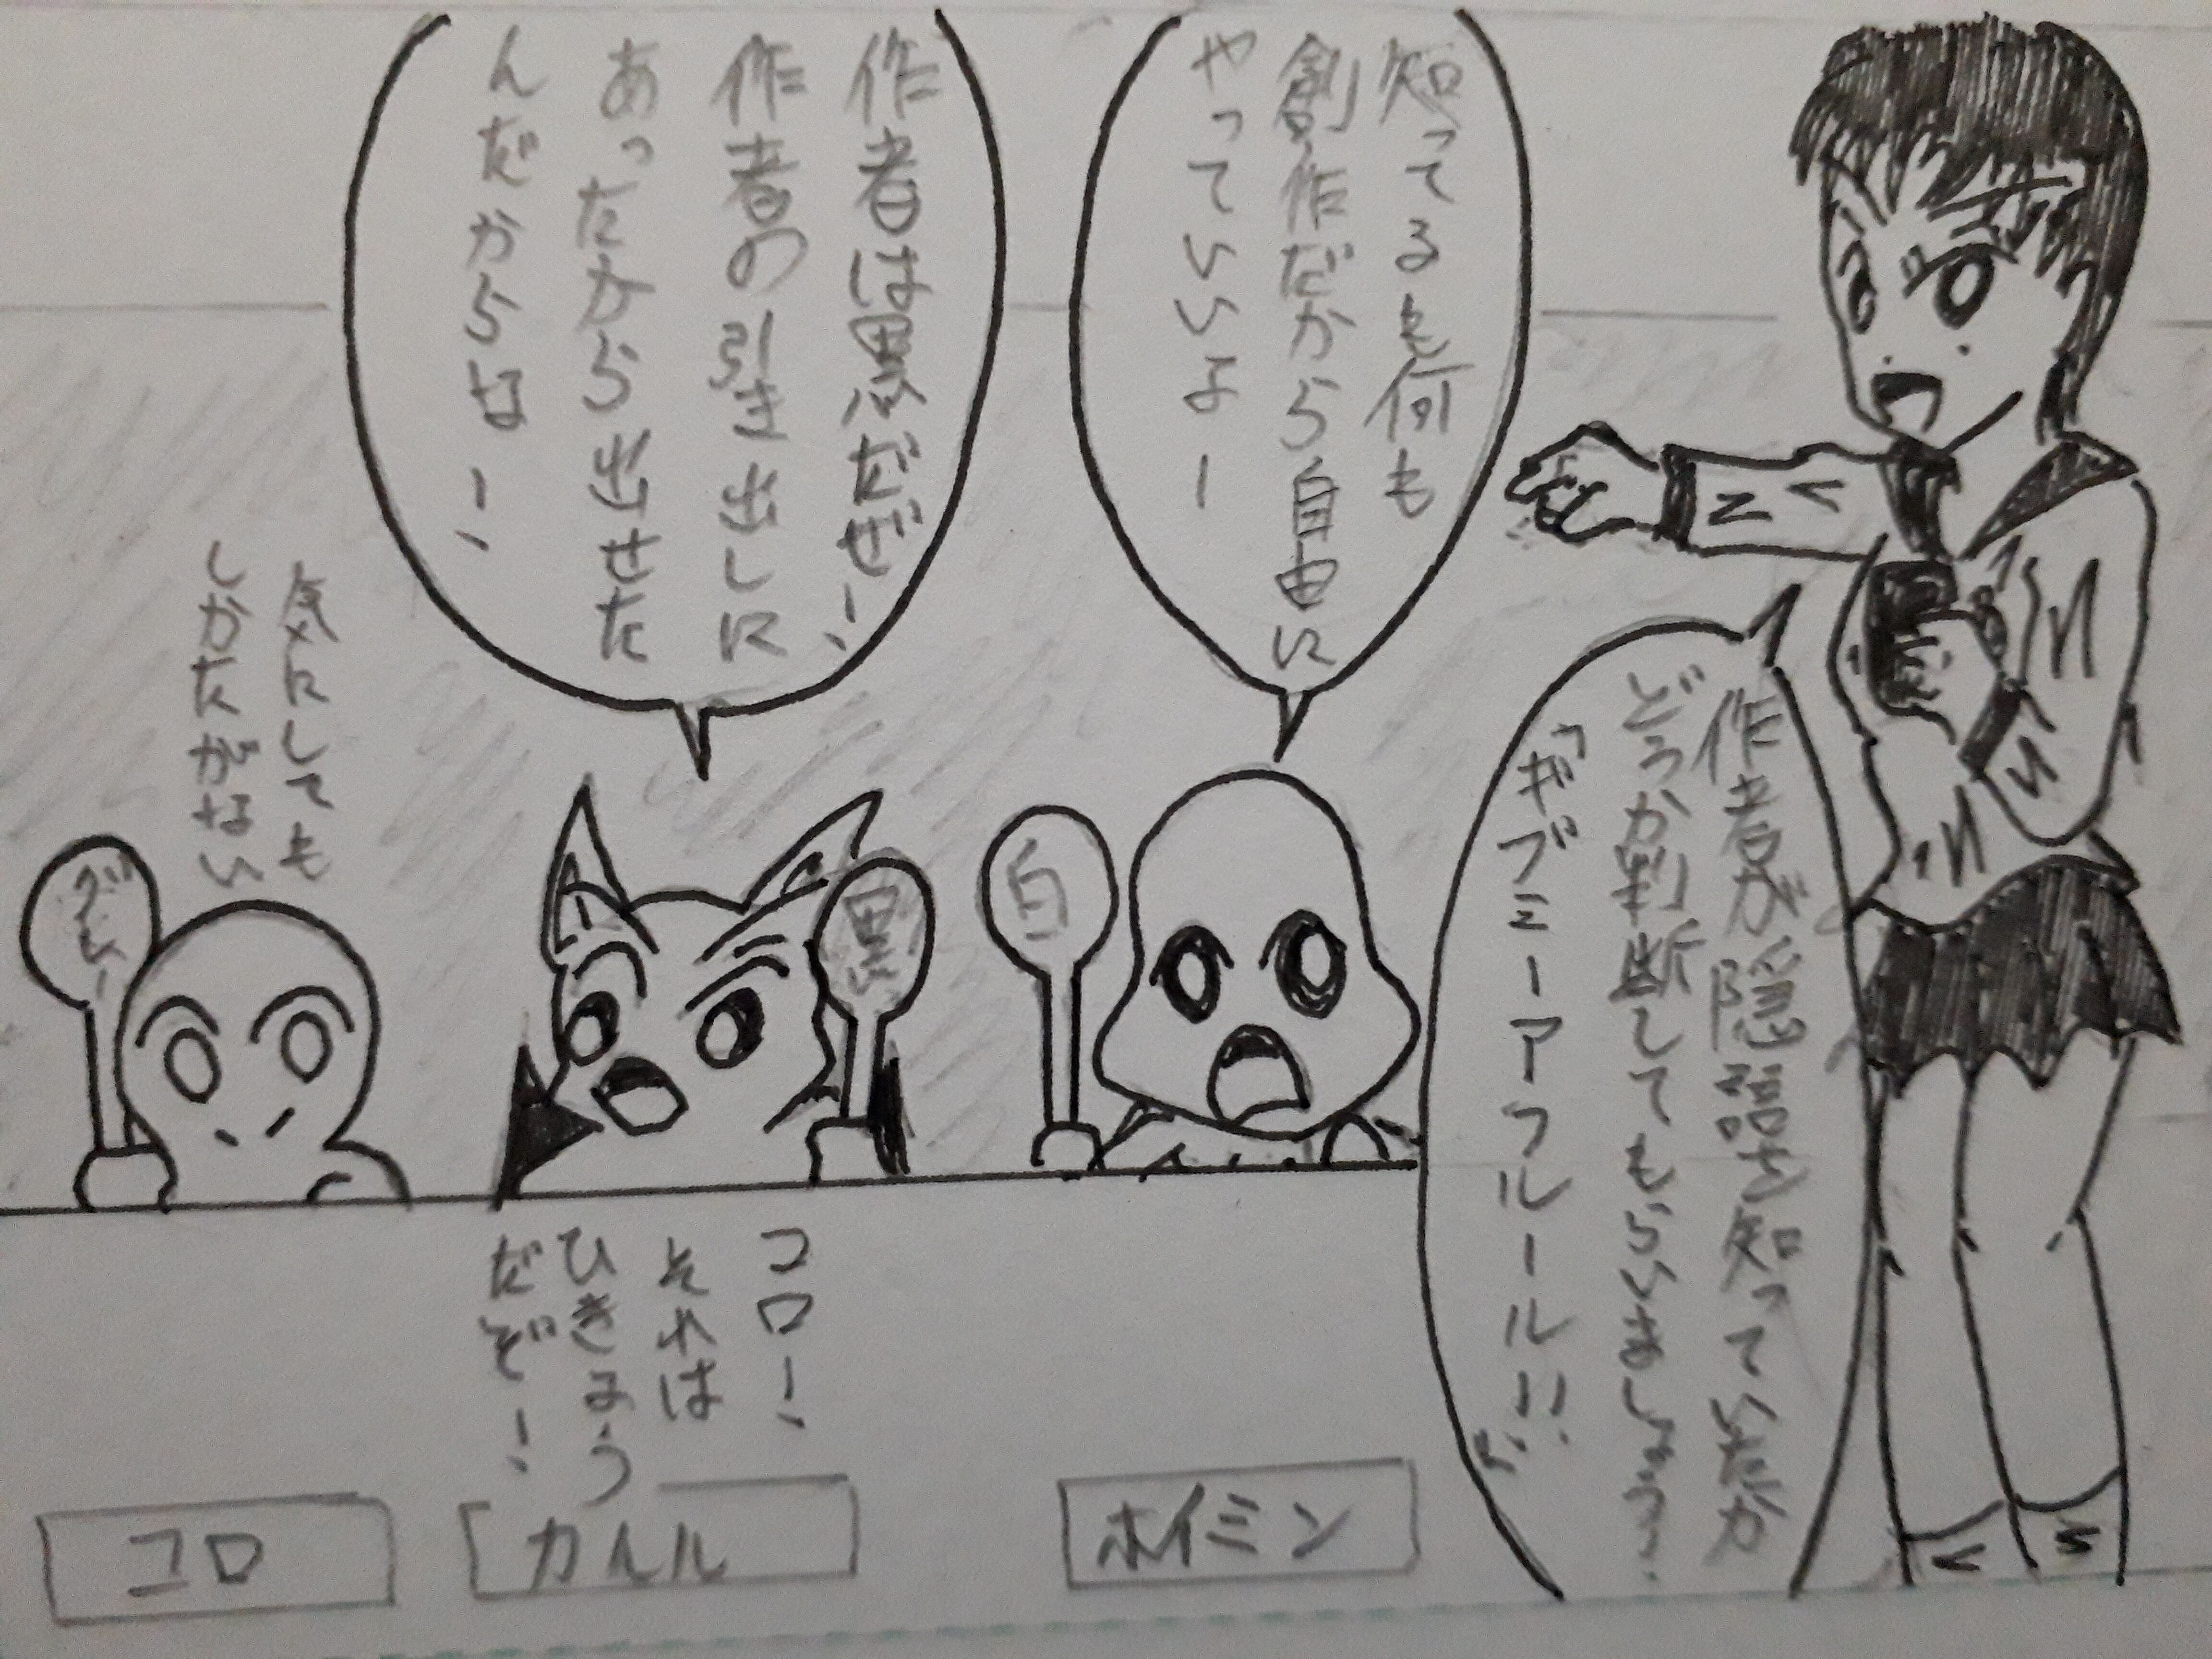 作者が隠語を知っていたか
どうか判断してもらいましょう!
「ギブミーアーフルールル!!」
知ってるも何も
創作だから自由に
やっていいよー
白
作者は黒だぜー!
作者の引き出しに
あったから出せた
んだからなー!
黒
気にしても
しかたがない
グレー
コロー!
それは
ひきょう
だぞー!
ホイミン
カルル
コロ